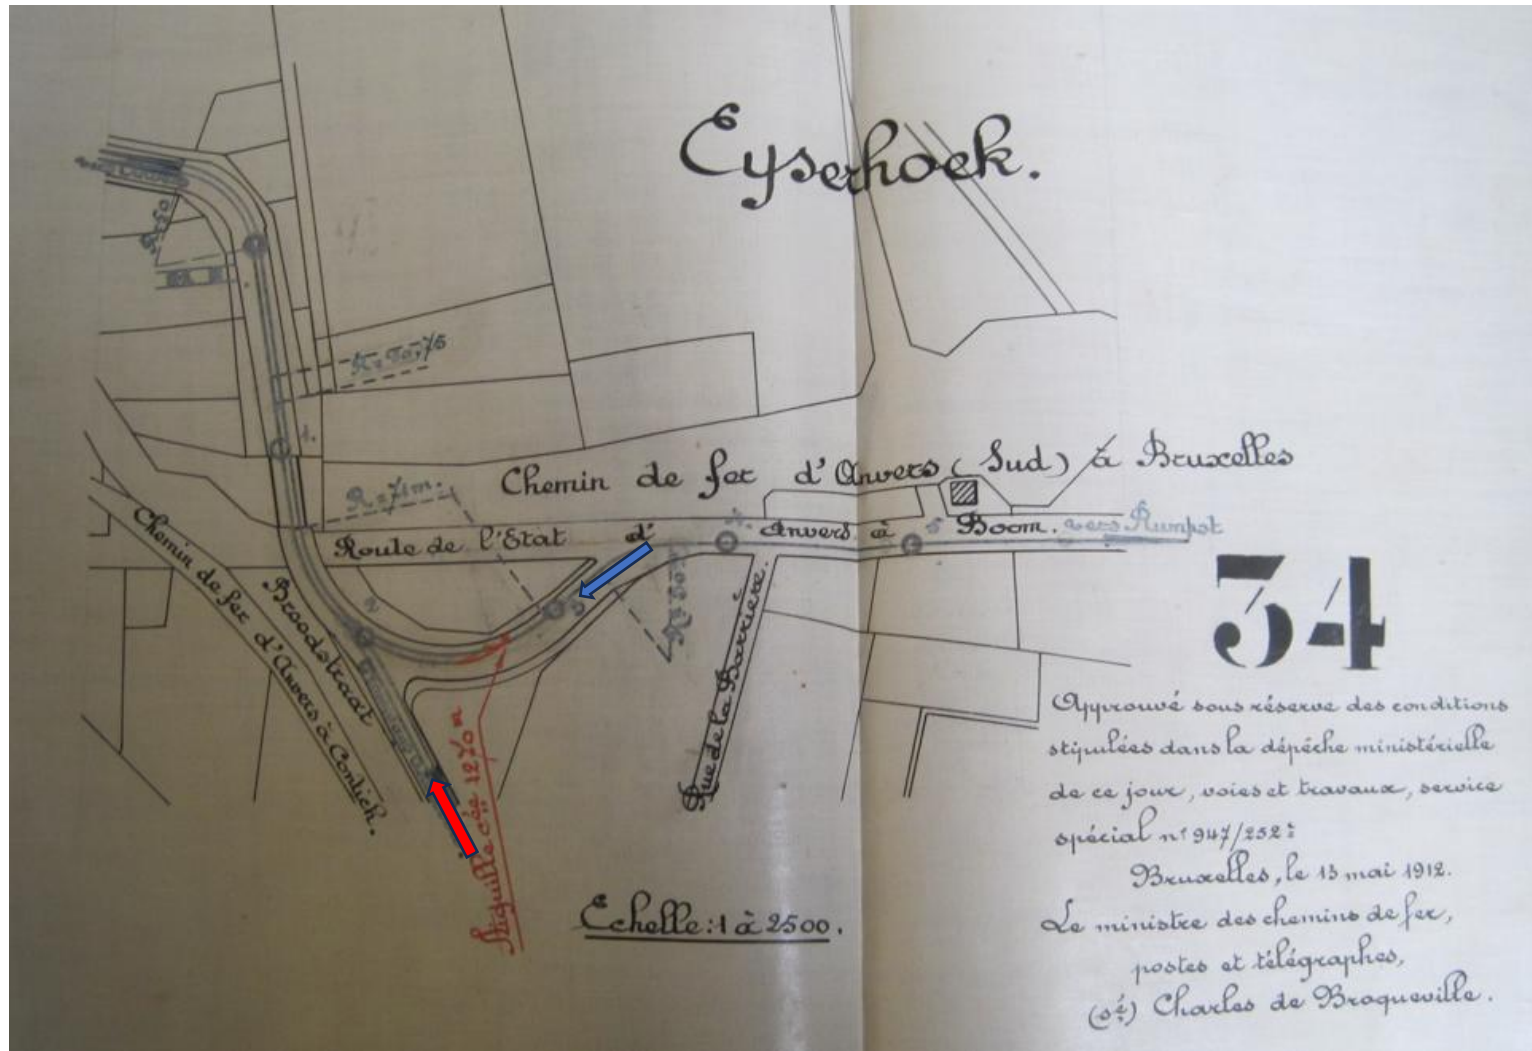 Eyserhoek.
R=50
R=50,75
1.
Chemin de fer d'Anvers (Sud) à Bruxelles
R=71m.
Route de l'Etat d'Anvers à Boom. vers Rumpst
4.
5
2
3
Chemin de fer d'Anvers à Contich.
Broodstraat
Rue de la Barrière.
Aiguille cée 1270m
34
Approuvé sous réserve des conditions
stipulées dans la dépêche ministérielle
de ce jour, voies et travaux, service
spécial n° 947/252:
Bruxelles, le 13 mai 1912.
Le ministre des chemins de fer,
postes et télégraphes,
(sé) Charles de Broqueville.
Echelle: 1 à 2500.